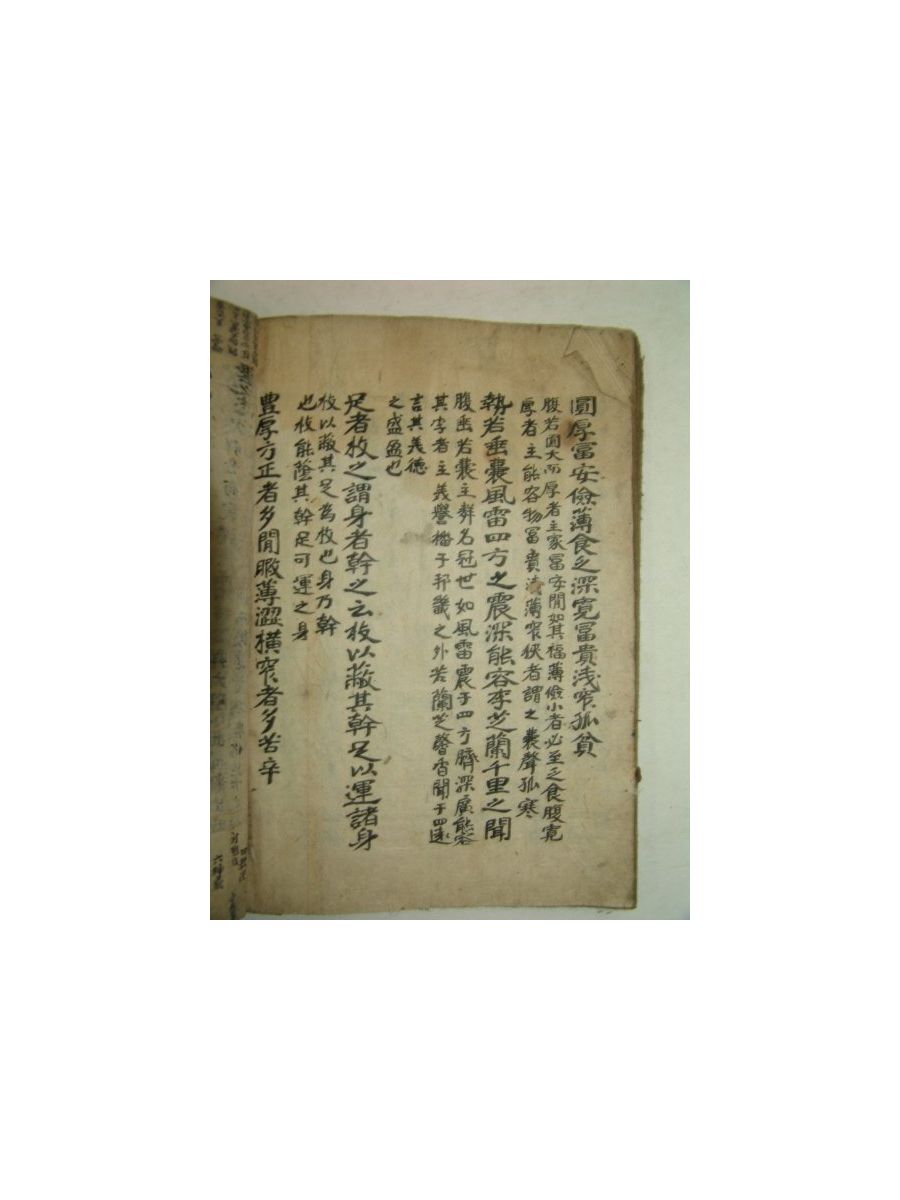 圓厚富安儉薄食乏深寛冨貴浅窄孤貧
腹若圓大而厚者主家冨安閒如其福薄儉小者必至乏食腹寛
厚者主能容物冨貴淺薄窄狹者謂之裹聲孤寒
勢若垂囊風雷四方之震深能容李芝蘭千里之聞
腹垂若囊主群名冠世如風雷震于四方臍深廣能容
其李者主義譽播于邦畿之外若蘭芝馨香聞于四遠
言其義德
之盛盈也
足者枚之謂身者幹之云枚以蔽其幹足以運諸身
枚以蔽其足為枚也身乃幹
也枚能蔭其幹足可運之身
豊厚方正者多閒暇薄澀橫窄者多苦辛